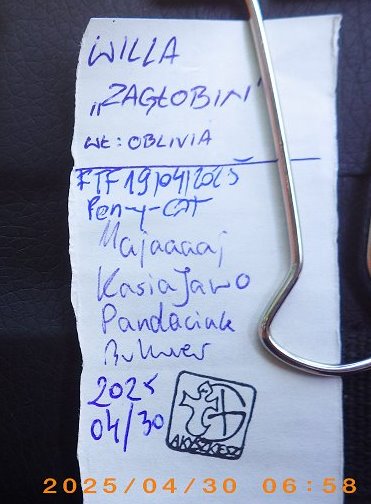 WILLA
„ZAGŁOBIN"
WŁ: OBLIVIA
FTF 19/04/2025
Pen-y-CAT
Majaaaaj
KasiaJawo
Pandaciak
2025
04/30
2025/04/30 06:58